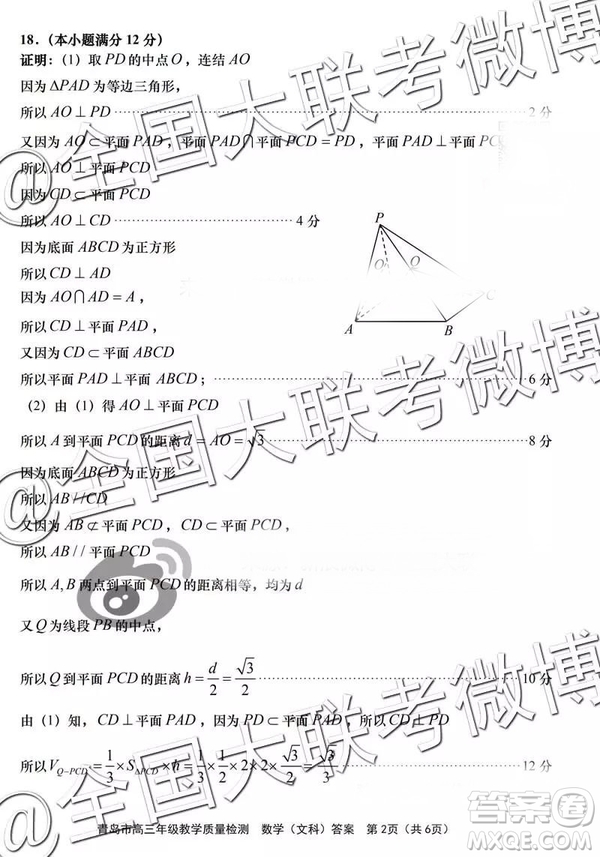 18.（本小题满分 12 分）
证明：（1）取 PD 的中点 O，连结 AO
因为 ΔPAD 为等边三角形，
所以 AO ⊥ PD ………… 2 分
又因为 AO ⊂ 平面 PAD，平面 PAD ∩ 平面 PCD = PD，平面 PAD ⊥ 平面 PCD
所以 AO ⊥ 平面 PCD
因为 CD ⊂ 平面 PCD
所以 AO ⊥ CD ………… 4 分
因为底面 ABCD 为正方形
所以 CD ⊥ AD
因为 AO ∩ AD = A，
所以 CD ⊥ 平面 PAD，
又因为 CD ⊂ 平面 ABCD
所以平面 PAD ⊥ 平面 ABCD； ………… 6 分
（2）由（1）得 AO ⊥ 平面 PCD
所以 A 到平面 PCD 的距离 d = AO = √3 ………… 8 分
因为底面 ABCD 为正方形
所以 AB // CD
又因为 AB ⊄ 平面 PCD，CD ⊂ 平面 PCD，
所以 AB // 平面 PCD
所以 A, B 两点到平面 PCD 的距离相等，均为 d
又 Q 为线段 PB 的中点，
所以 Q 到平面 PCD 的距离 h = d/2 = √3/2 ………… 10 分
由（1）知，CD ⊥ 平面 PAD，因为 PD ⊂ 平面 PAD，所以 CD ⊥ PD
所以 V_{Q-PCD} = 1/3 × S_{ΔPCD} × h = 1/3 × 1/2 × 2 × 2 × √3/2 = √3/3 ………… 12 分
P
Q
O
C
A
B
@全国大联考微博
@全国大联考微博
@全国大联考微博
青岛市高三年级教学质量检测 数学（文科）答案 第 2页（共 6页）
答案圈